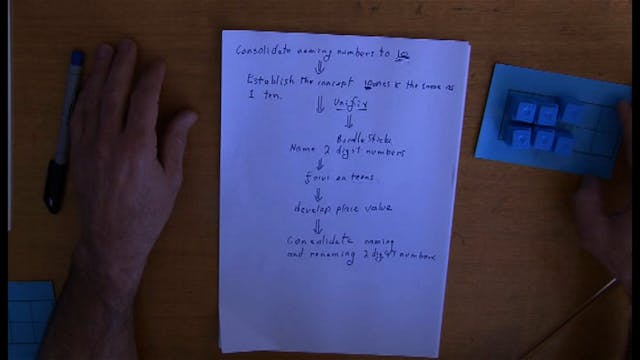 Consolidate naming numbers to 10
Establish the concept 10 ones is the same as
1 ten.
Unifix
Bundle Sticks
Name 2 digit numbers
focus on teens
develop place value
Consolidate naming
and renaming 2 digit numbers